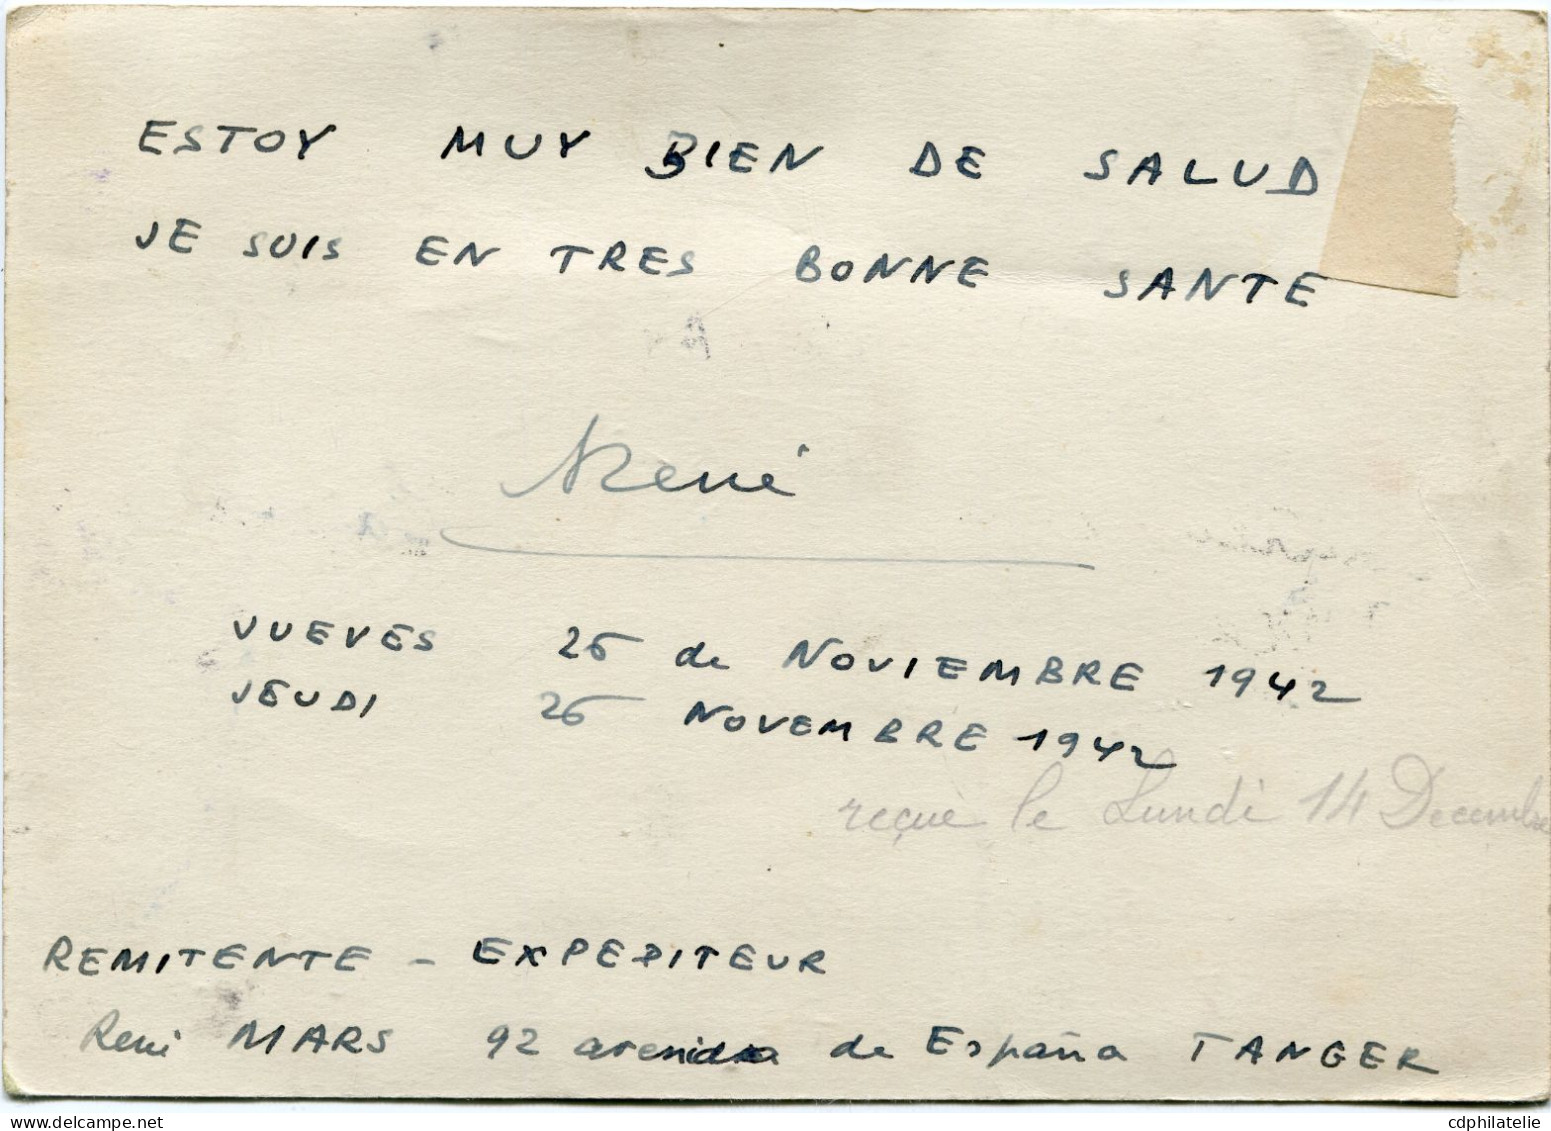 ESTOY MUY BIEN DE SALUD
JE SUIS EN TRES BONNE SANTE
René
JUEVES 26 de NOVIEMBRE 1942
JEUDI 26 NOVEMBRE 1942
reçue le Lundi 14 Decembre
REMITENTE - EXPEDITEUR
René MARS 92 avenida de España TANGER
cdphilatelie